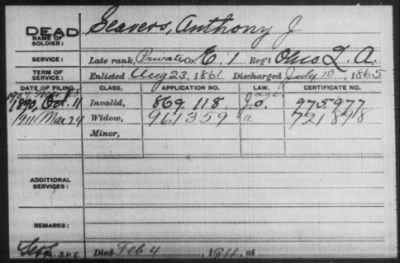 DEAD
NAME OF SOLDIER: Seavers, Anthony J
SERVICE: Late rank, Private Co. E. 1 Reg't Ohio L. A.
TERM OF SERVICE: Enlisted Aug 23, 1861 Discharged July 10, 1865
DATE OF FILING. CLASS. APPLICATION NO. LAW. CERTIFICATE NO.
1890, Oct. 11 Invalid, 869.118. J.O. 975.977
1911 Mar 24 Widow, 961359 721878
Minor,
ADDITIONAL SERVICES:
REMARKS:
Died Feb 4, 1911, at